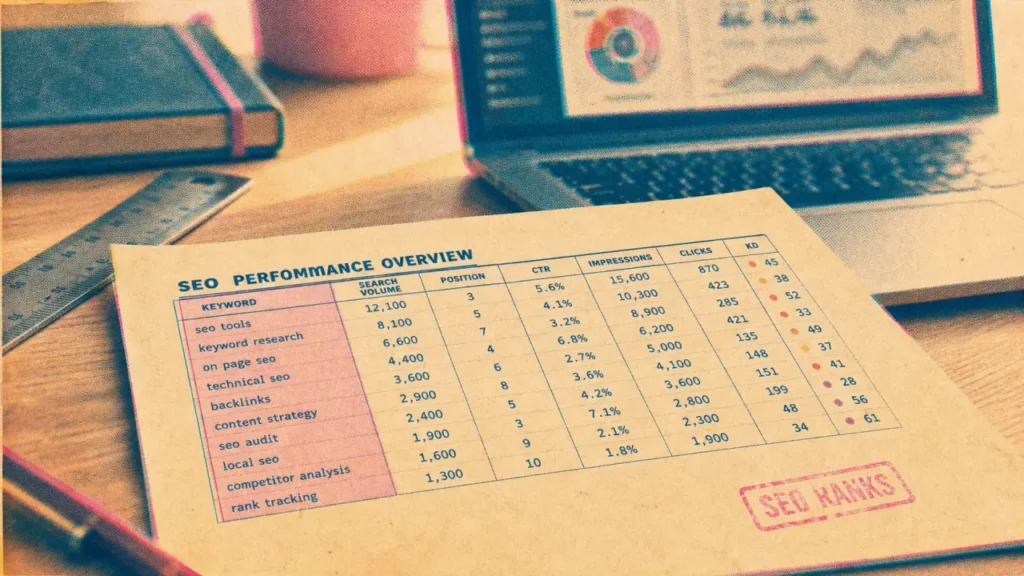 SEO PERFOMMANCE OVERVIEW
KEYWORD SEARCH VOLUME POSITION CTR IMPRESSIONS CLICKS KD
seo tools 12,100 3 5.6% 15,600 870 45
keyword research 8,100 5 4.1% 10,300 423 38
on page seo 6,600 7 3.2% 8,900 285 52
technical seo 4,400 4 6.8% 6,200 421 33
backlinks 3,600 6 2.7% 5,000 135 49
content strategy 2,900 8 3.6% 4,100 148 37
seo audit 2,400 5 4.2% 3,600 151 41
local seo 1,900 3 7.1% 2,800 199 28
competitor analysis 1,600 9 2.1% 2,300 48 56
rank tracking 1,300 10 1.8% 1,900 34 61
SEO RANKS